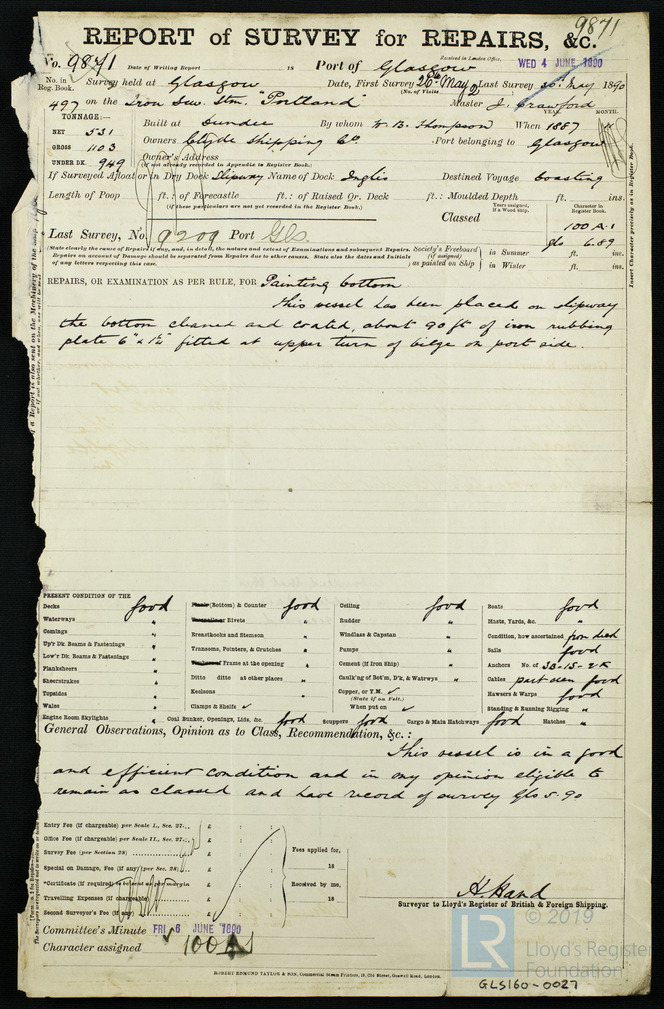 9871
REPORT of SURVEY for REPAIRS, &c.
Received in London Office,
No. 9871 Date of Writing Report 18 Port of Glasgow WED 4 JUNE 1890
No. in Reg. Book. Survey held at Glasgow Date, First Survey 26th May Last Survey 30 May 1890
(No. of Visits 2)
497 on the Iron Sew. Stm. "Portland" Master J. Crawford
TONNAGE:— YEAR. MONTH.
NET 531 Built at Dundee By whom W. B. Thompson When 1887
GROSS 1103 Owners Clyde Shipping Co. Port belonging to Glasgow
UNDER DK. 949 Owner's Address
(if not already recorded in Appendix to Register Book.)
If Surveyed Afloat or in Dry Dock Slipway Name of Dock Inglis Destined Voyage Coasting
Length of Poop ft.: of Forecastle ft.: of Raised Qr. Deck ft.: Moulded Depth ft. ins.
(if these particulars are not yet recorded in the Register Book.)
Years assigned, if a Wood Ship. Character in Register Book.
Classed 100 A.1
Last Survey, No. 9209 Port Gls gls 6.89
(State clearly the cause of Repairs if any, and, in detail, the nature and extent of Examinations and subsequent Repairs.
Repairs on account of Damage should be separated from Repairs due to other causes. State also the dates and Initials
of any letters respecting this case.
Society's Freeboard (if assigned) as painted on Ship
in Summer ft. ins.
in Winter ft. ins.
Insert Character precisely as in Register Book.
REPAIRS, OR EXAMINATION AS PER RULE, FOR Painting bottom
This vessel has been placed on slipway
the bottom cleaned and coated, about 90 ft of iron rubbing
plate 6" x 1¼" fitted at upper turn of bilge on port side.
PRESENT CONDITION OF THE
Decks good
Waterways "
Comings "
Up'r Dk. Beams & Fastenings "
Low'r Dk. Beams & Fastenings "
Planksheers "
Sheerstrakes "
Topsides "
Wales "
Engine Room Skylights "
(Bottom) & Counter good
Rivets "
Breasthooks and Stemson "
Transoms, Pointers, & Crutches "
Frame at the opening "
Ditto ditto at other places "
Keelsons "
Clamps & Shelfs ✓
Coal Bunker, Openings, Lids, &c. good
Ceiling good
Rudder "
Windlass & Capstan "
Pumps "
Cement (if Iron Ship) "
Caulk'ng of Bot'm, D'k, & Waterwys "
Copper, or Y.M. ✓
(State if on Felt.)
When put on ✓
Scuppers good Cargo & Main Hatchways good Hatches "
Boats good
Masts, Yards, &c. "
Condition, how ascertained from deck
Sails good
Anchors No. of 3B-1S-2K
Cables part seen good
Hawsers & Warps good
Standing & Running Rigging "
General Observations, Opinion as to Class, Recommendation, &c.:
This vessel is in a good
and efficient condition and in my opinion eligible to
remain as classed and have record of survey Gls 5.90
Entry Fee (if chargeable) per Scale I., Sec. 27... £ : :
Office Fee (if chargeable) per Scale II., Sec. 27... £ : :
Survey Fee (per Section 28) £ : :
Special on Damage, Fee (if any) (per Sec. 28) £ : :
*Certificate (if required) to be sent as per margin £ : :
Travelling Expenses (if chargeable) £ : :
Second Surveyor's Fee (if any) £ : :
Fees applied for,
18
Received by me,
18
H. Hand
Surveyor to Lloyd's Register of British & Foreign Shipping.
Committee's Minute FRI 6 JUNE 1890
Character assigned 100 A1
ROBERT EDMUND TAYLOR & SON, Commercial Steam Printers, 19, Old Street, Goswell Road, London.
© 2019
LR
Lloyd's Register
Foundation
GLS160-0027